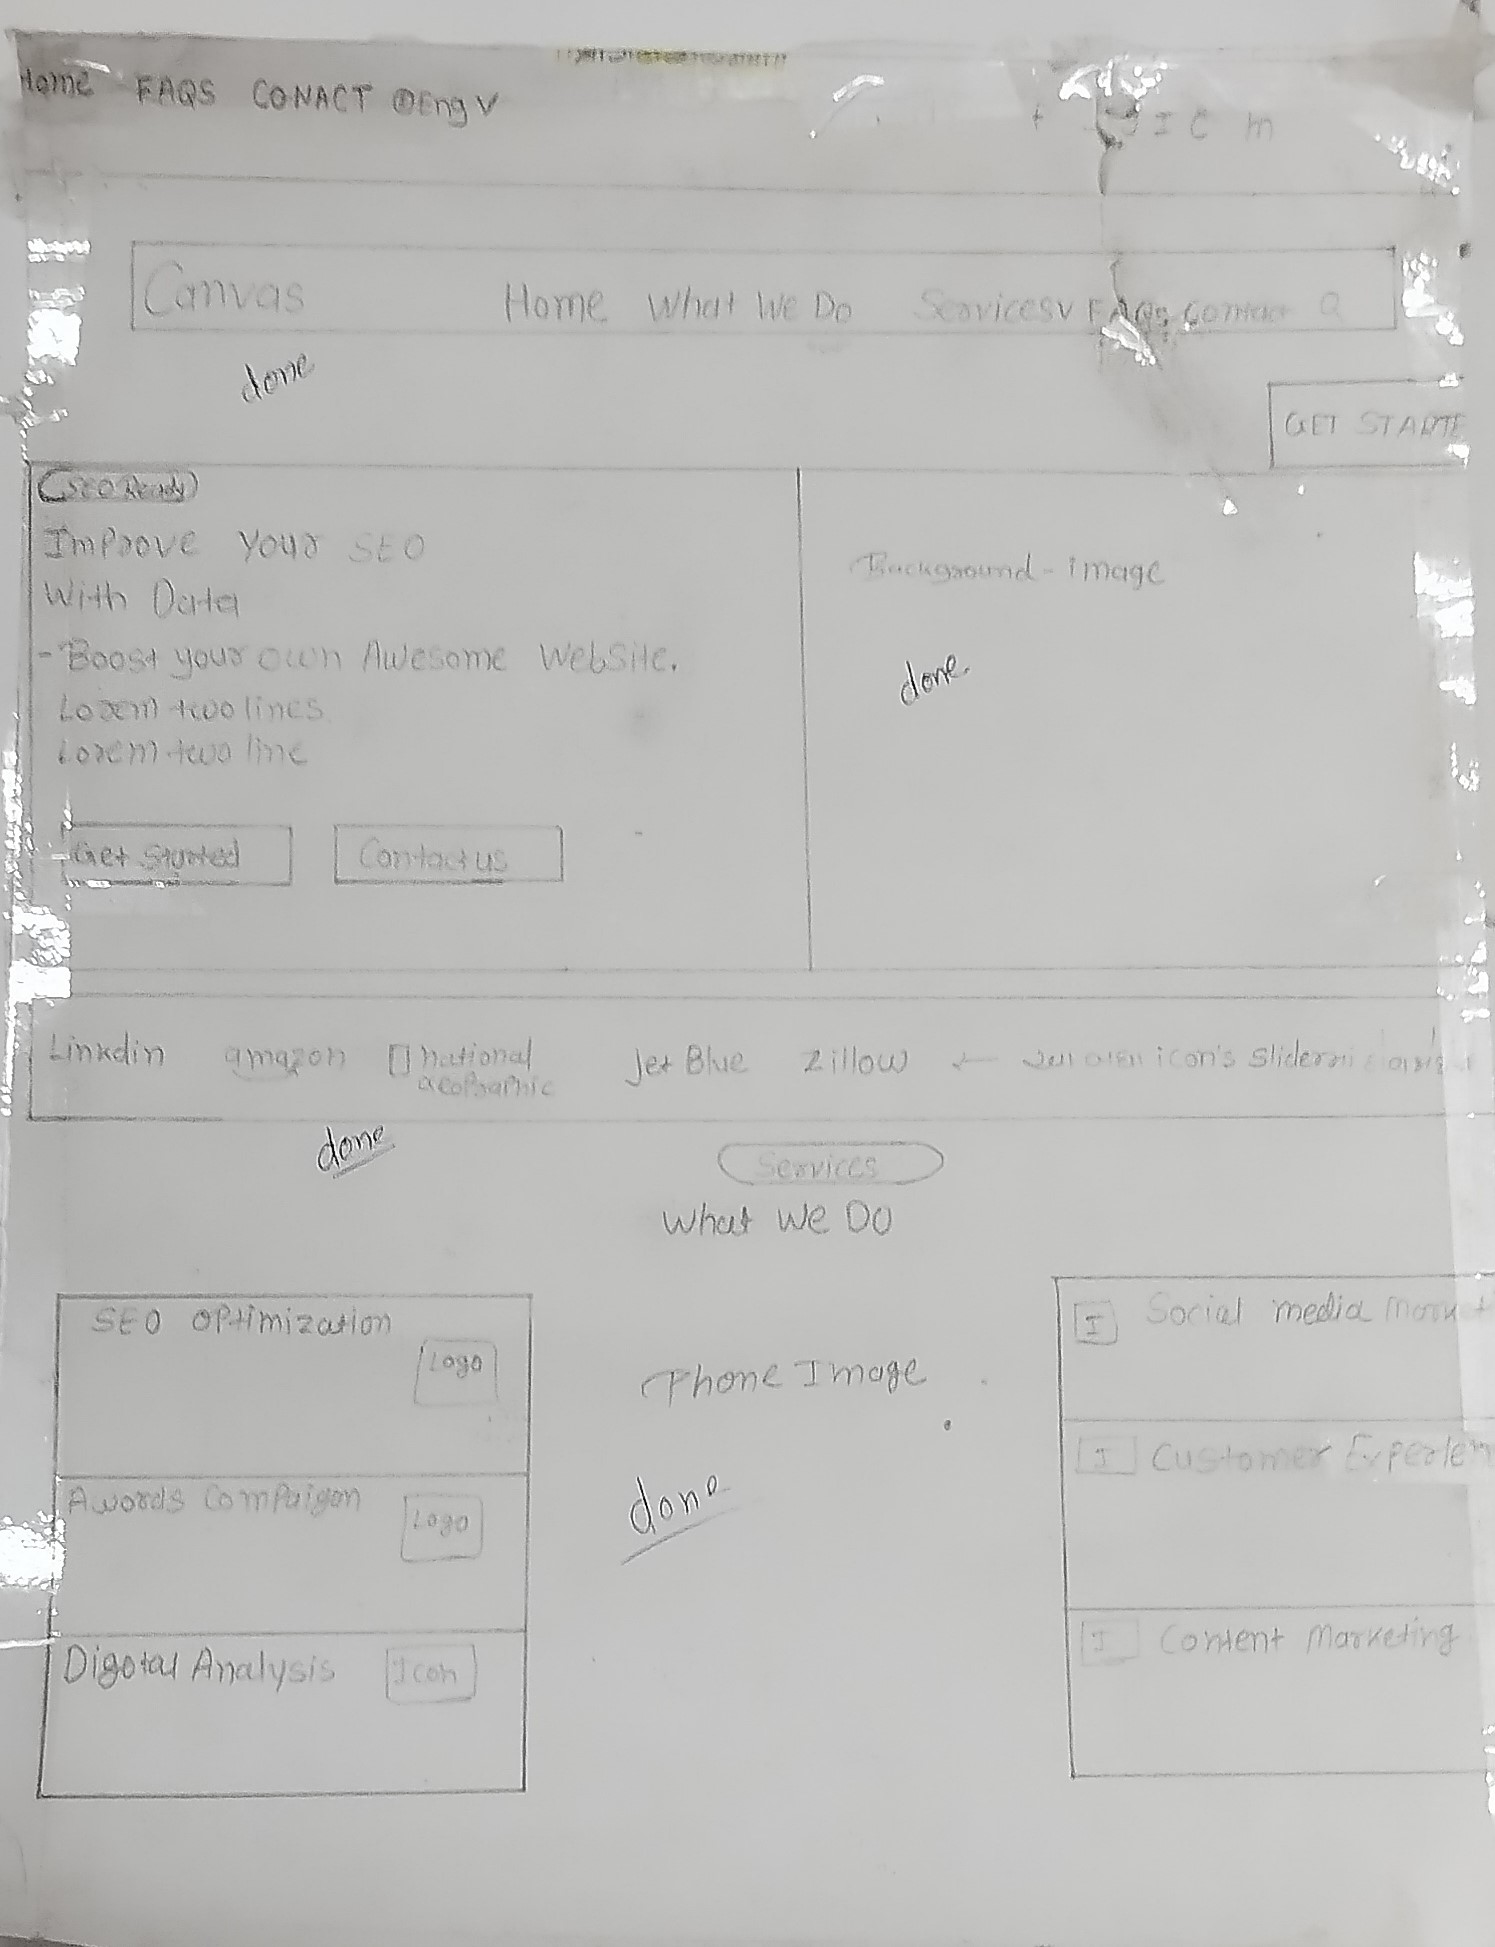 Home FAQS CONACT Eng V
I C m
Canvas Home What We Do Services V FAQs Contact Q
done
GET STARTE
SEO Ready
Improve Your SEO
With Data
- Boost your own Awesome Website.
Lorem two lines
Lorem two line
Get Started Contact us
Background - image
done
Linkdin amazon national
Geographic Jet Blue Zillow ← icon's slider
done
Services
What We Do
SEO Optimization
Logo
Awords Compaigon
Logo
Digotal Analysis Icon
Phone Image
done
I Social media Market
I Customer Experien
I Content Marketing